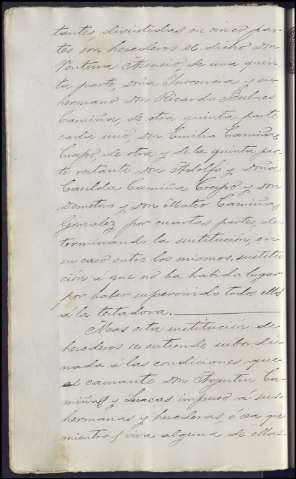 tantes, divididas en cinco par-
tes son herederos el dicho don
Ventura de una quin-
ta parte, doña Inocencia, y su
hermano don Ricardo
Camiña, de otra quinta parte
cada uno, don Emilio Camiña
Crespo, de otra y de la quinta par-
te restante don Adolfo y Doña
Casilda Camiña Crespo, y don
Demetrio y don Mateo Camiña
Gonzalez por cuartas partes de-
terminando la sustitución, en
su caso entre los mismos, sustitu-
ción á que no ha habido lugar
por haber supervivido todos ellos
á la testadora.
Mas esta institución de
herederos se entiende subordi-
nada á las condiciones que
el causante Don Agustin Ca-
miña y impuso á sus
hermanas y herederas, ó sea que
mientras viva alguna de ellas